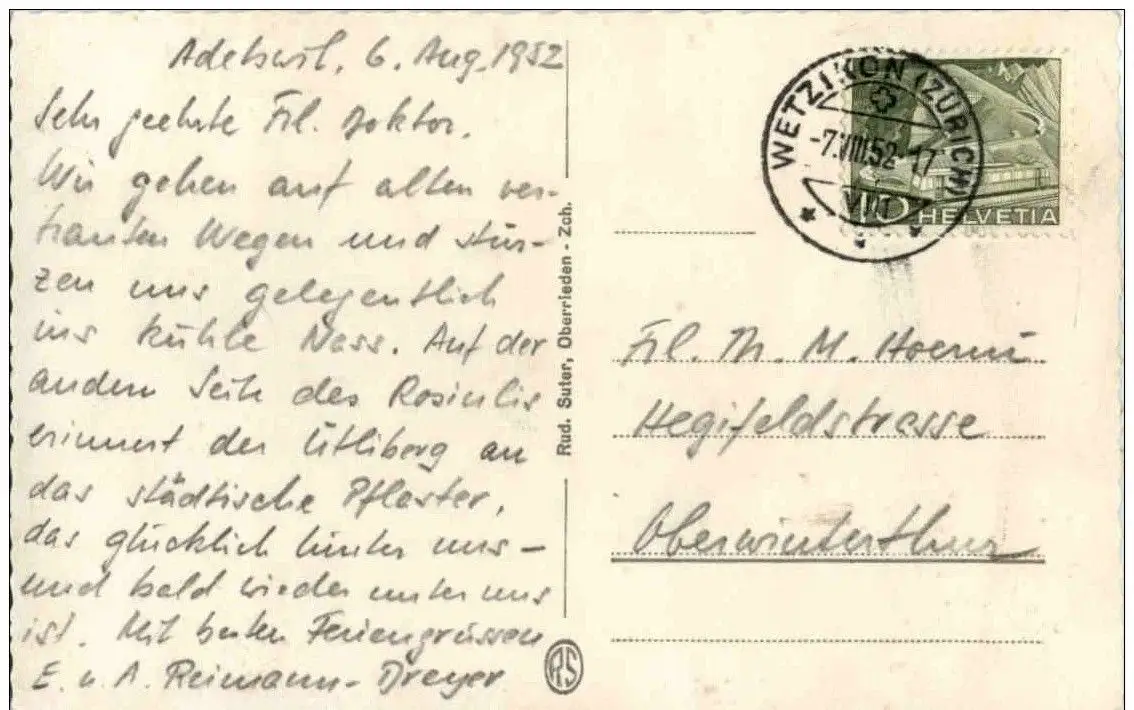 Adetswil, 6. Aug. 1952
Sehr geehrte Frl. Doktor.
Wir gehen auf alten ver-
trauten Wegen und stür-
zen uns gelegentlich
ins kühle Nass. Auf der
andern Seite des Rosinlis
erinnert der Ütliberg an
das städtische Pflaster,
das glücklich hinter uns –
und bald wieder unter uns
ist. Mit besten Feriengrüssen
E. u. A. Reimann-Dreyer
Rud. Suter, Oberrieden - Zch.
RS
WETZIKON (ZÜRICH)
-7.VIII.52-17
10 HELVETIA
Frl. Dr. M. Hoerni
Hegifeldstrasse
Oberwinterthur